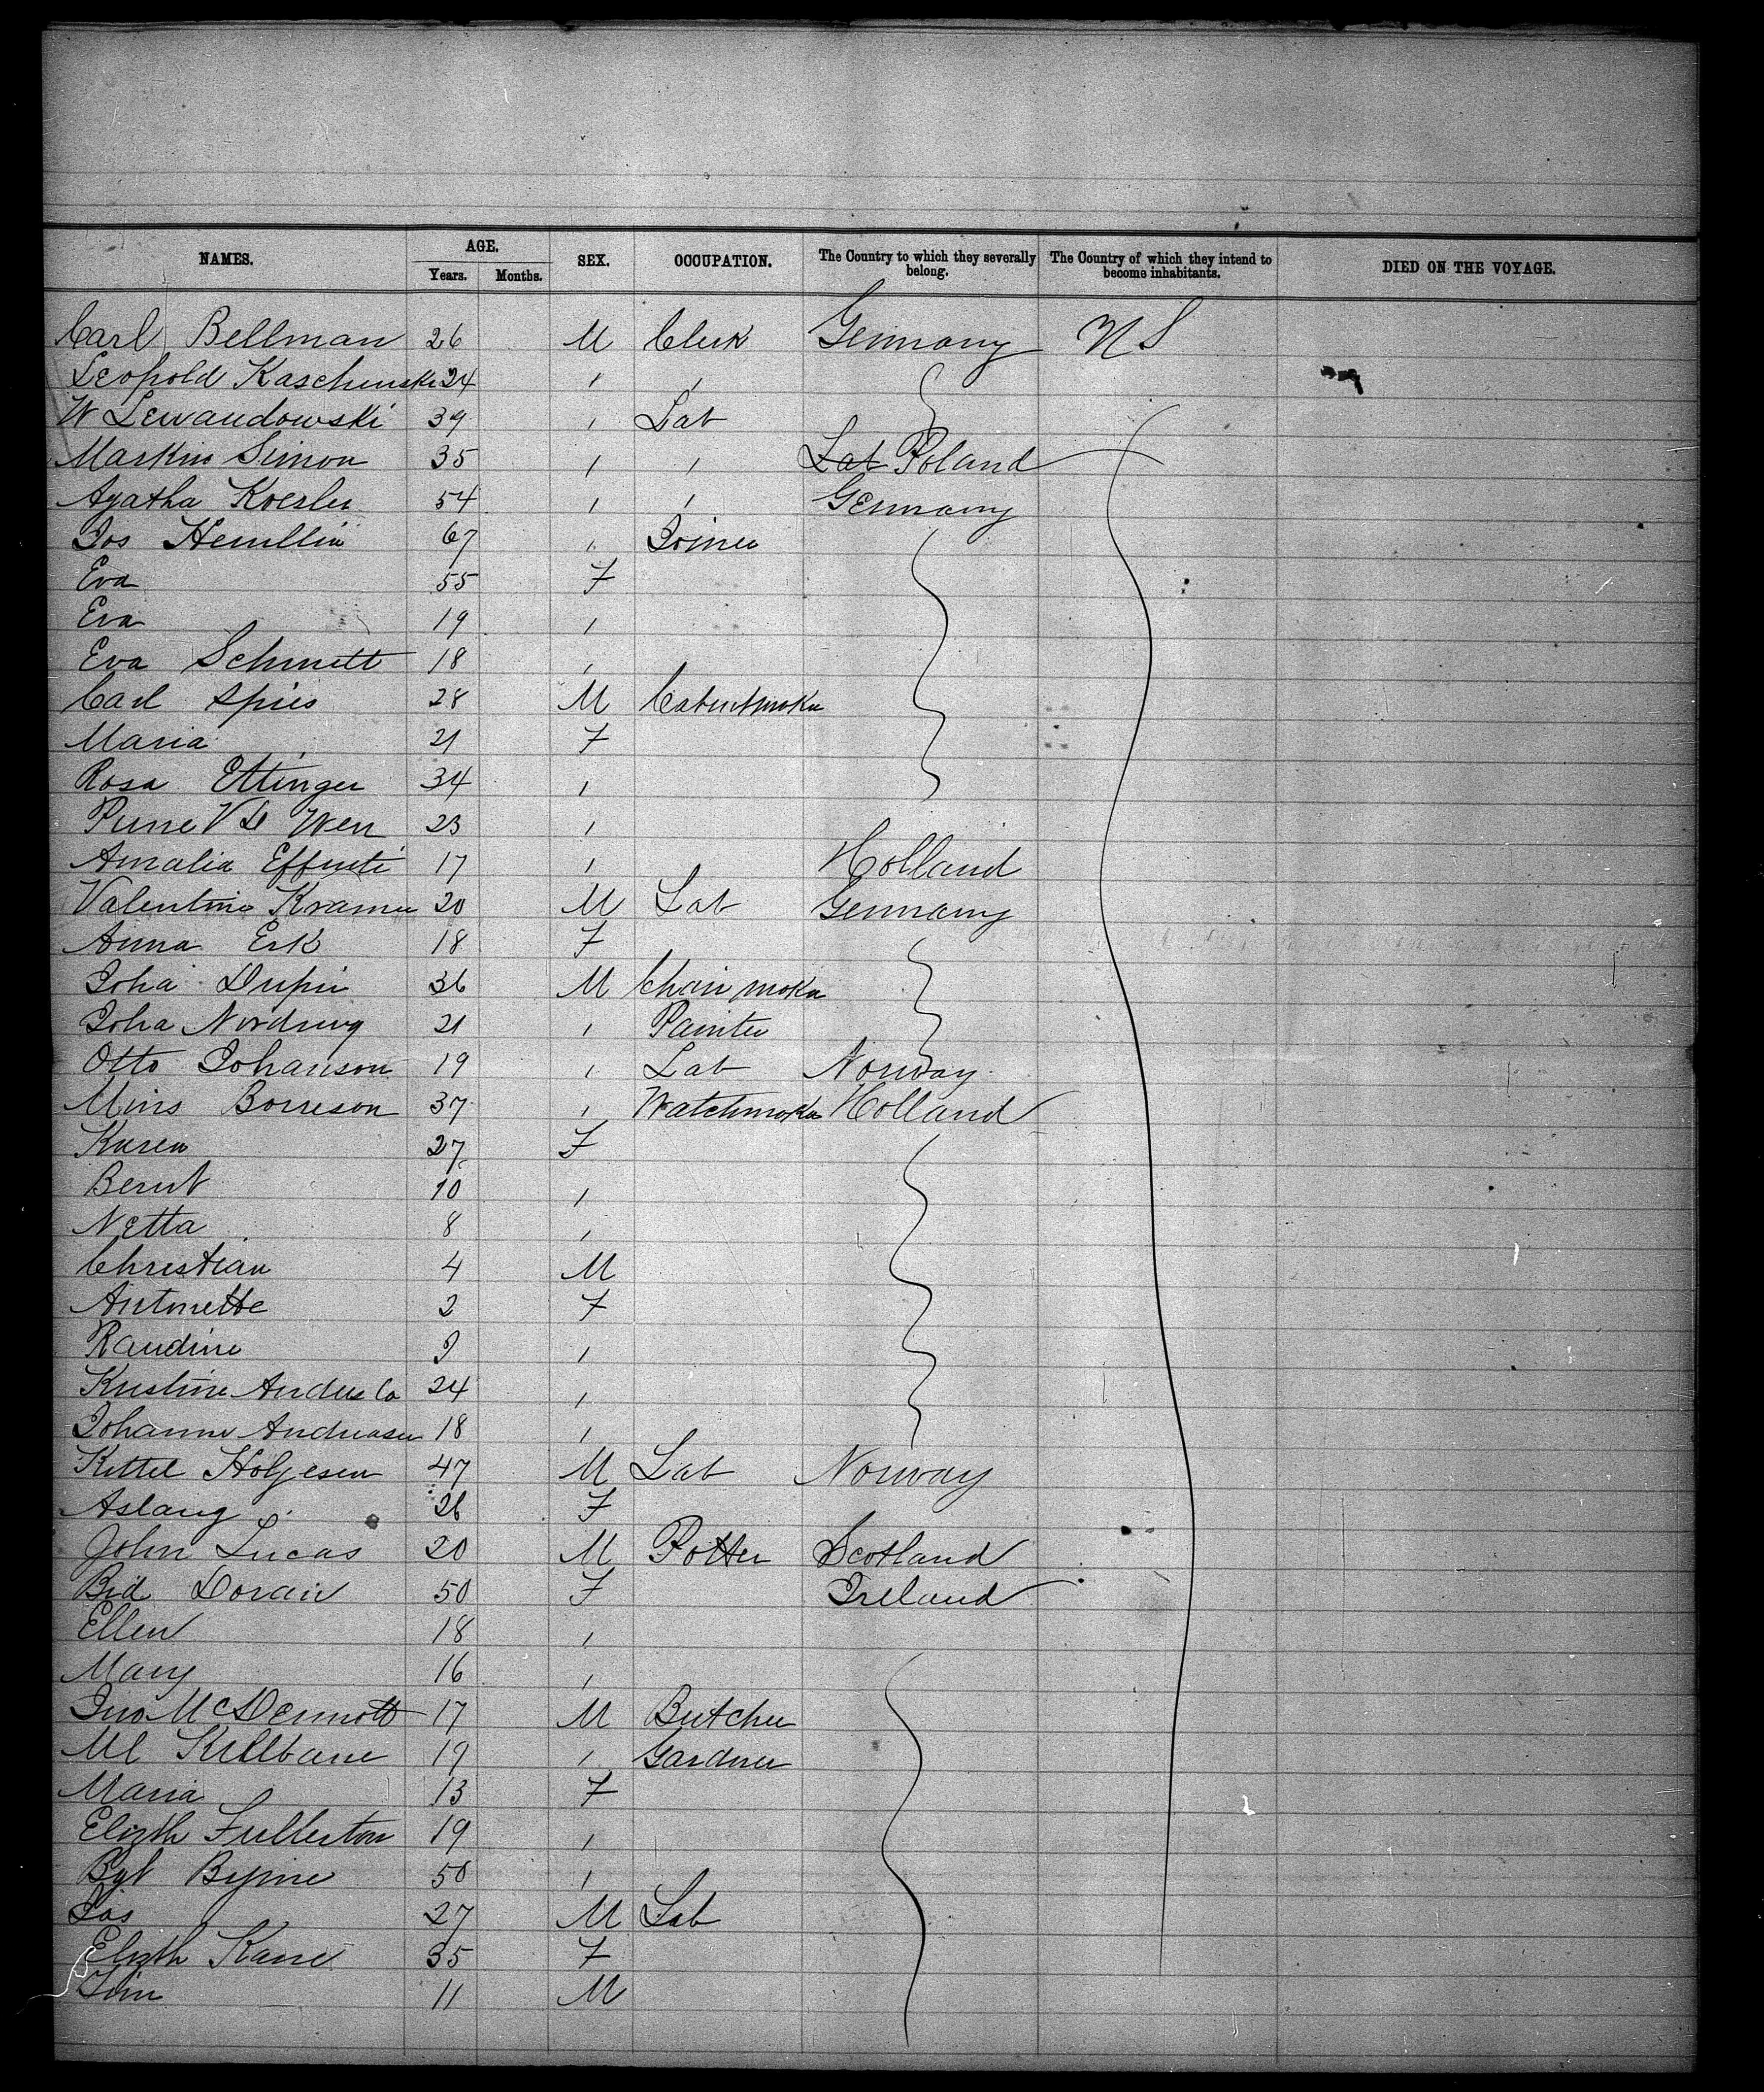 NAMES. AGE. SEX. OCCUPATION. The Country to which they severally belong. The Country of which they intend to become inhabitants. DIED ON THE VOYAGE.
Years. Months.
Carl Bellman 26 M Clerk Germany U S
Leopold Kaschinske 24 " "
W Lewandowski 39 " Lab
Simon 35 " " Lat Poland
Agatha Koesler 54 " " Germany
Jos 67 " Joiner
Eva 55 F
Eva 19 "
Eva Schmitt 18 "
Carl Spies 28 M Cabintmaker
Maria 21 F
Rosa Ettinger 34 "
23 "
Amalia 17 " Holland
Valentine Kramer 20 M Lab Germany
Anna Erk 18 F
Joha 36 M Chair maker
Joha 21 " Painter
Otto Johanson 19 " Lab Norway
Borreson 37 " Watchmaker Holland
Karen 27 F
Bernt 10 "
Netta 8 "
Christian 4 M
Antonette 2 F
Raudine "
Kristine 24 "
Johanne Andreasen 18 "
Kittel Holgesen 47 M Lab Norway
Aslaug 26 F
John Lucas 20 M Potter Scotland
Bid Doran 50 F Ireland
Ellen 18 "
Mary 16 "
Jno McDermott 17 M Butcher
Ml Kilbane 19 " Gardner
Maria 13 F
Elizth Fullerton 19 "
Bgt Byrne 50 "
Jas 27 M Lab
Elizth Kane 35 F
Tim 11 M